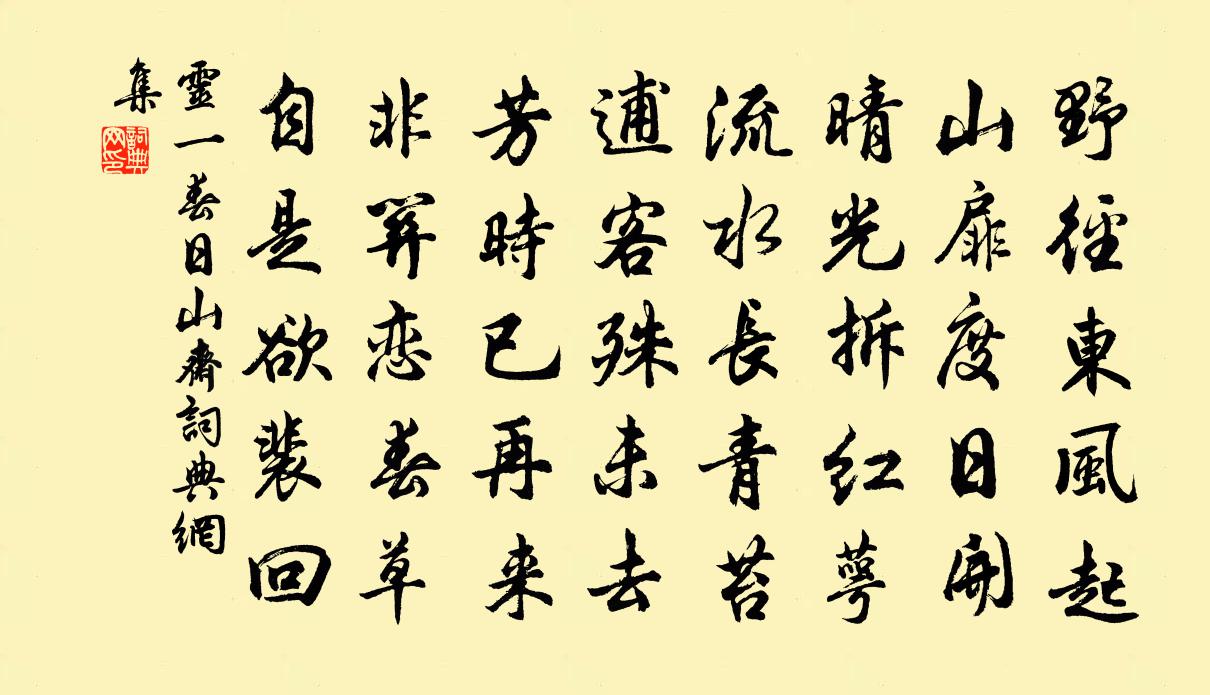 野徑東風起
山扉度日開
晴光拆红萼
流水長青苔
逋客殊未去
芳時已再来
非關恋春草
自是欲裴回
靈一春日山齋詞典網
集
詞典
网印